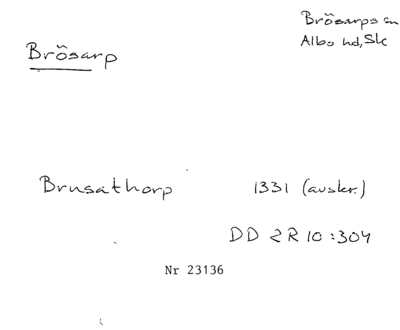 Brösarps sn
Albo hd, Sk
Brösarp
Brusathorp 1331 (avskr.)
DD 2R 10:304
Nr 23136